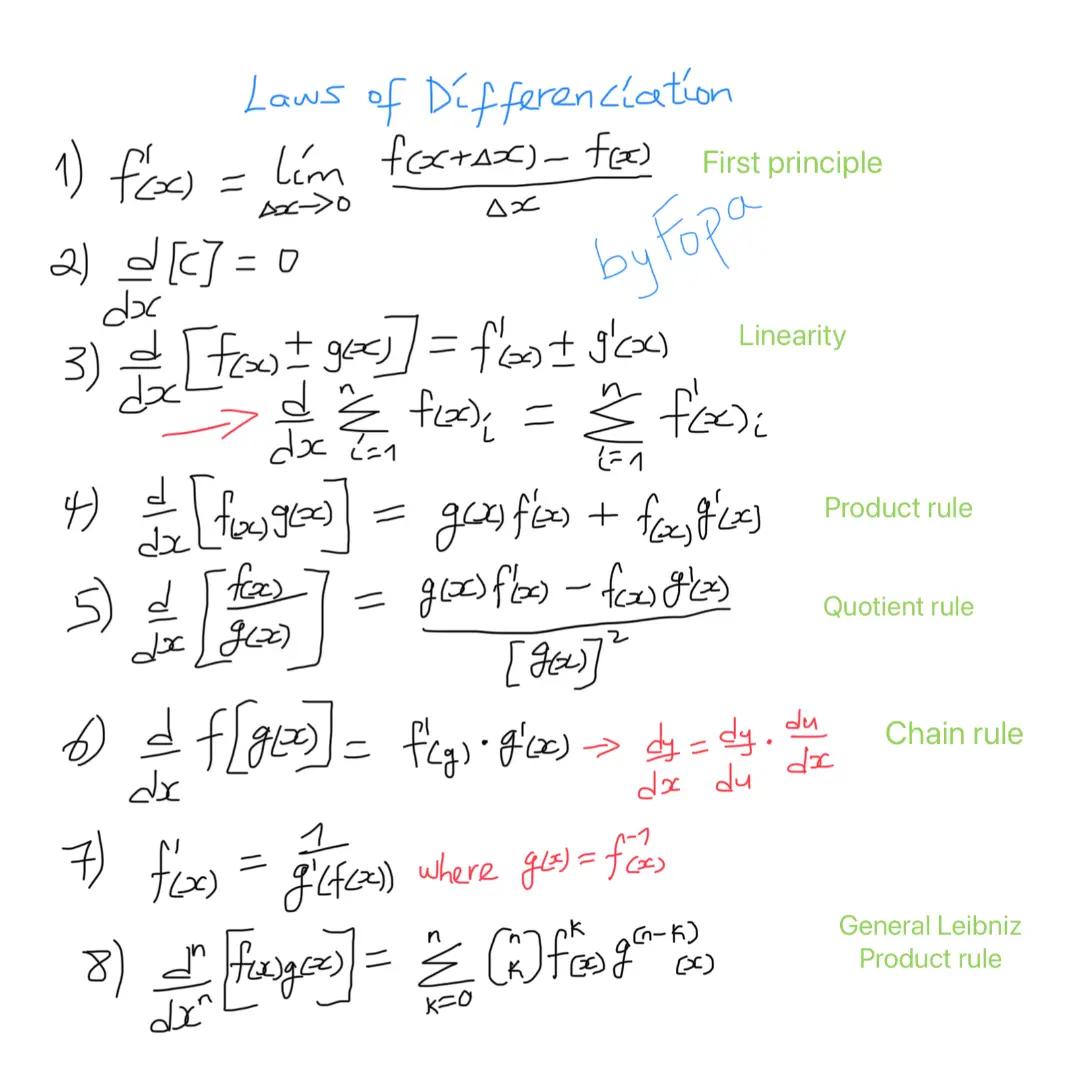 Laws of Differenciation
1) f'(x) = lim Δx→0 f(x+Δx) − f(x) / Δx First principle
by Fopa
2) d/dx [c] = 0
3) d/dx [f(x) ± g(x)] = f'(x) ± g'(x) Linearity
→ d/dx Σ i=1 n f(x)i = Σ i=1 n f'(x)i
4) d/dx [f(x) g(x)] = g(x) f'(x) + f(x) g'(x) Product rule
5) d/dx [f(x)/g(x)] = g(x) f'(x) − f(x) g'(x) / [g(x)]² Quotient rule
6) d/dx f[g(x)] = f'(g) · g'(x) → dy/dx = dy/du · du/dx Chain rule
7) f'(x) = 1/g'(f(x)) where g(x) = f⁻¹(x)
8) dⁿ/dxⁿ [f(x)g(x)] = Σ k=0 n (n k) f^k(x) g^(n−k)(x) General Leibniz
Product rule